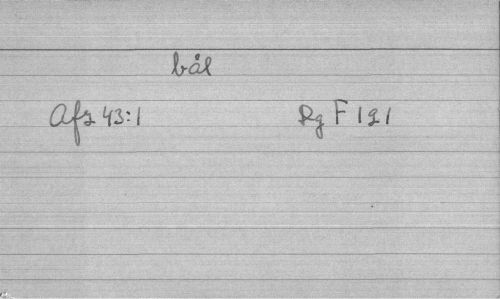 bål
Afz 43:1 Rg F 191